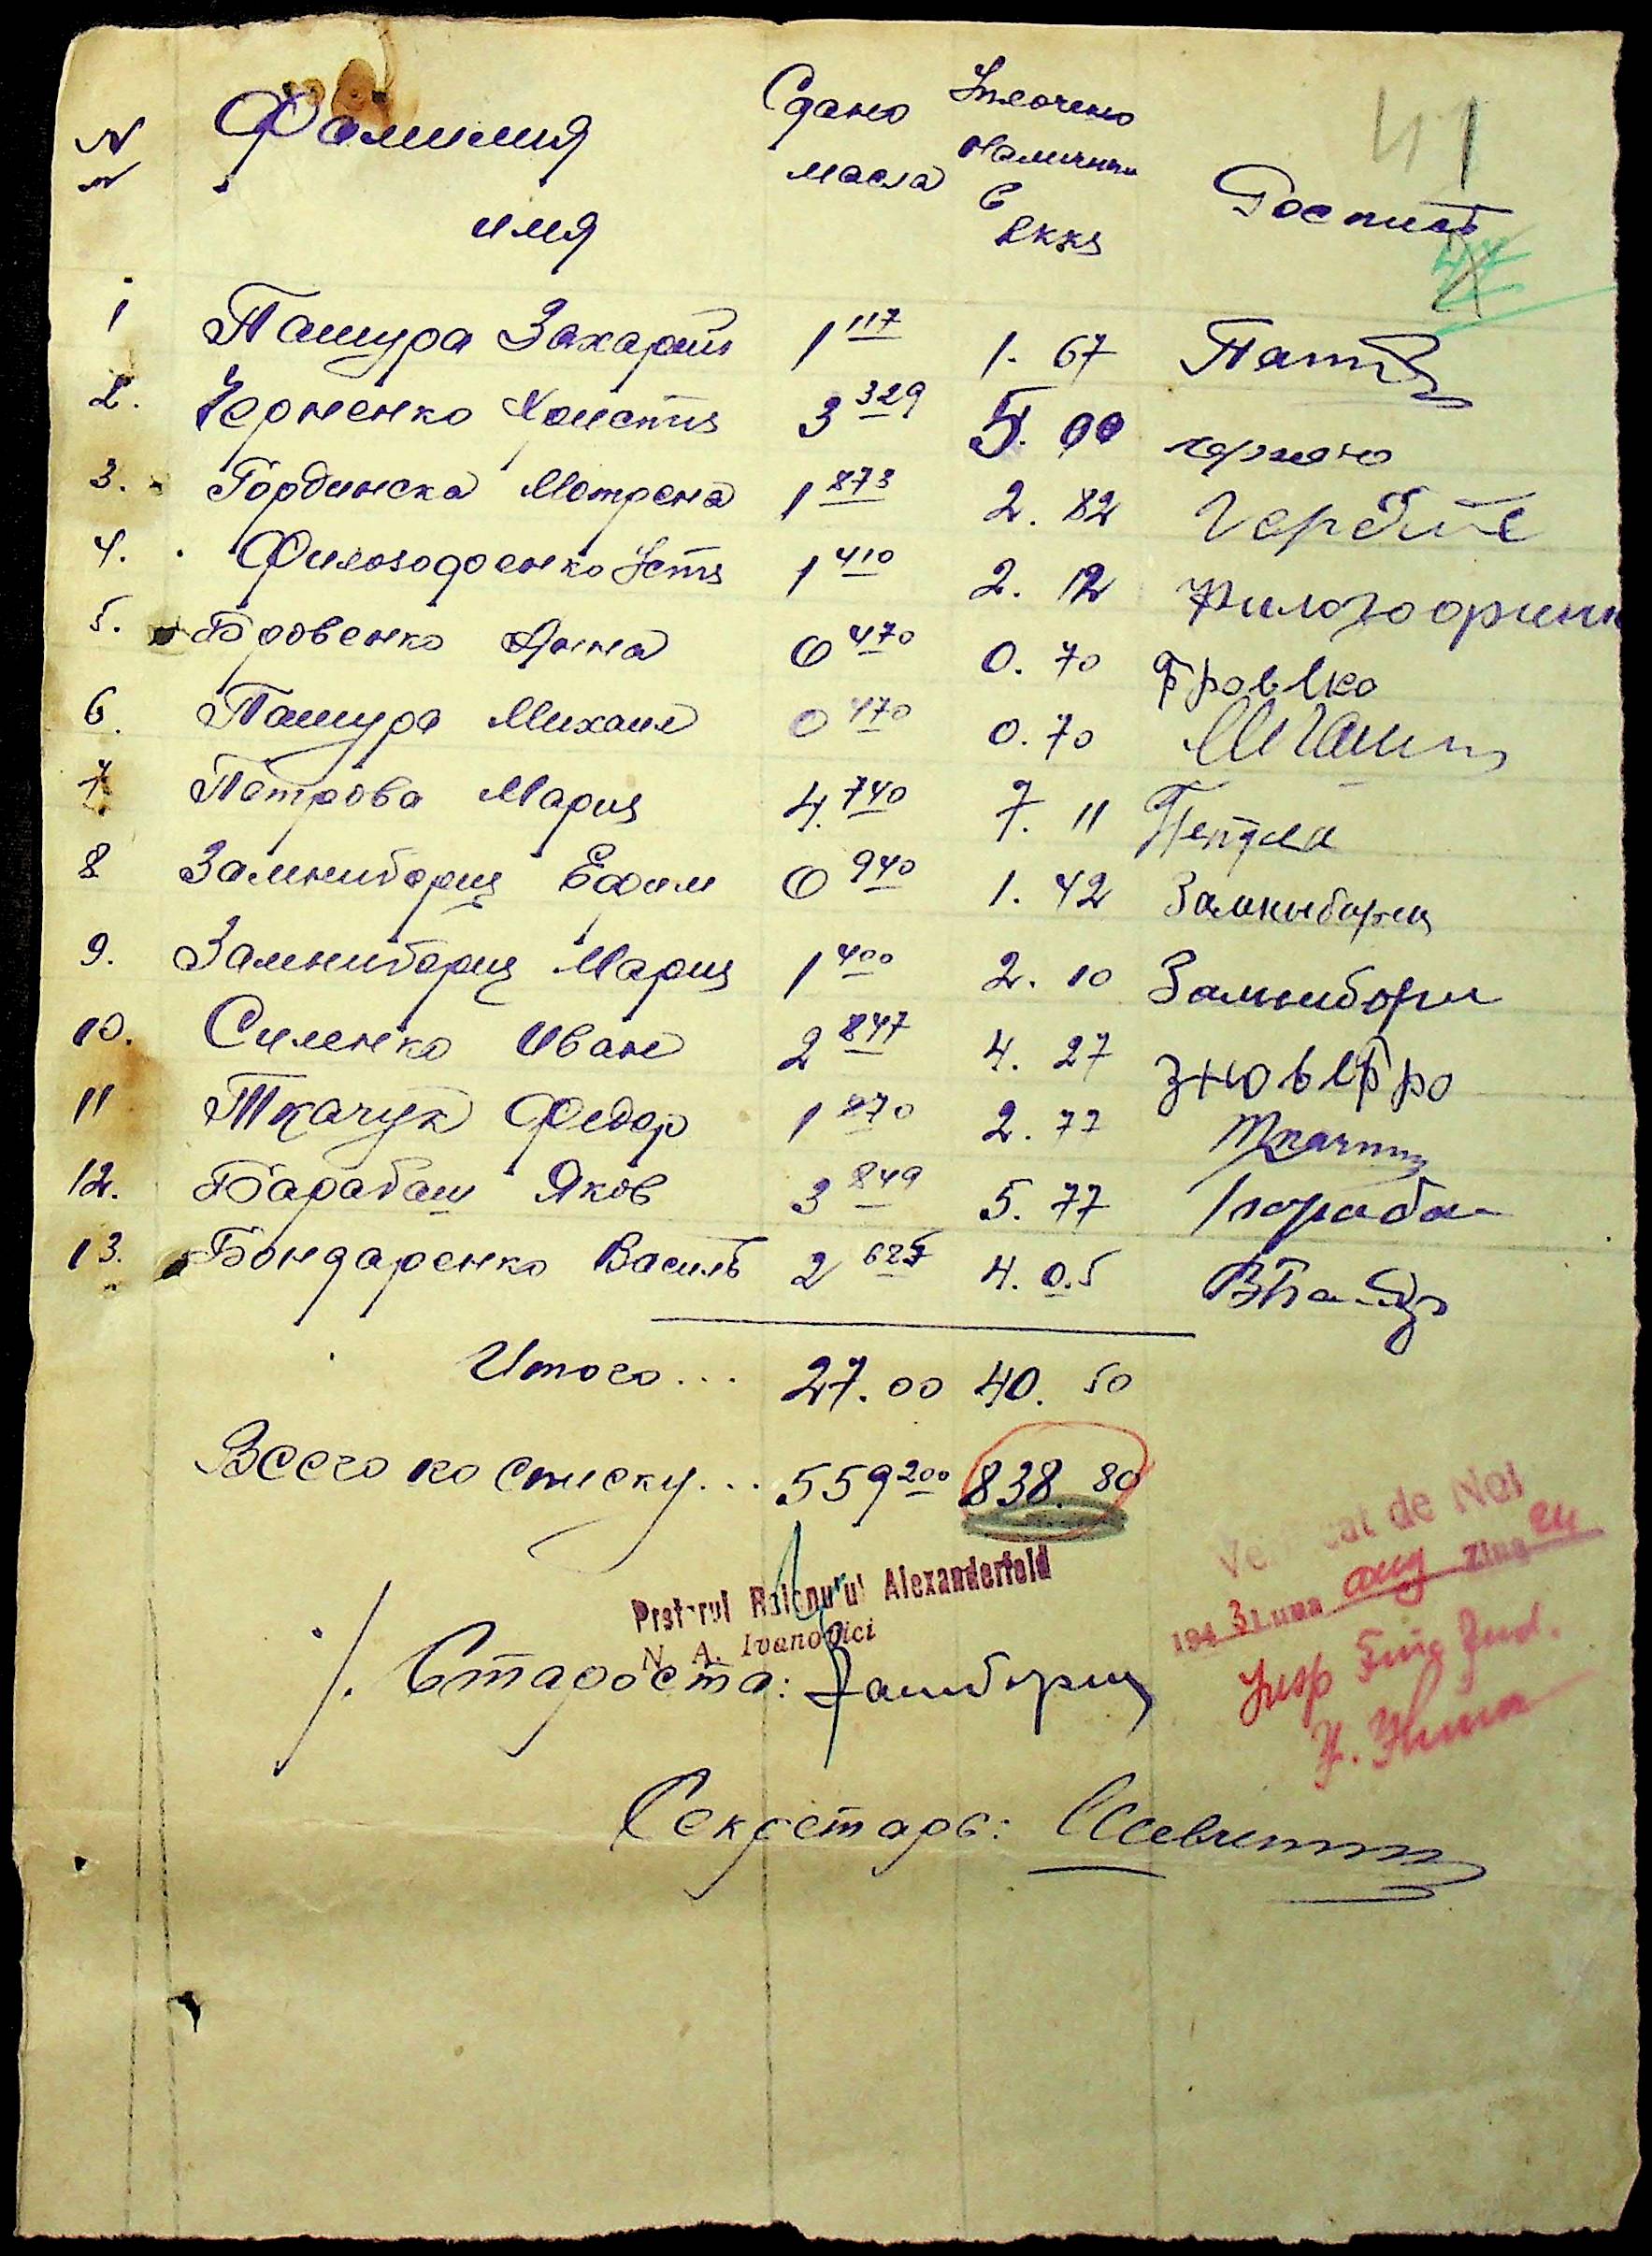 41
N Фамилия Сдано Уплочено
н имя масла наличными Роспись
в
RKKS
47
1 Пашура Захарий 1 117 1. 67 Паш
2. Черненко Христя 3 329 5. 00 чернено
3. Гординска Мотрена 1 873 2. 82
4. Филозофенко Устя 1 410 2. 12 Филозофенк
5. Бровенко Анна 0 470 0. 70
6. Пашура Михаил 0 470 0. 70 МПашу
7 Петрова Мария 4. 740 7. 11
8 Замниборщ Ефим 0 940 1. 42 Замниборщ
9. Замниборщ Мария 1 400 2. 10 Замнибори
10. Силенко Иван 2 847 4. 27
11 Ткачук Федор 1 870 2. 77
12. Барабаш Яков 3 849 5. 77
13. Бондаренко Василь 2 685 4. 0.5
Итого... 27.00 40. 50
Всего по списку... 559 200 838. 80
Verificat de Noi
194 3 Luna aug Ziua
Pretorul Raionului Alexanderfeld
N. A. Ivanovici
/. Староста: Замборщ
Insp Fin Jud.
Секретарь: